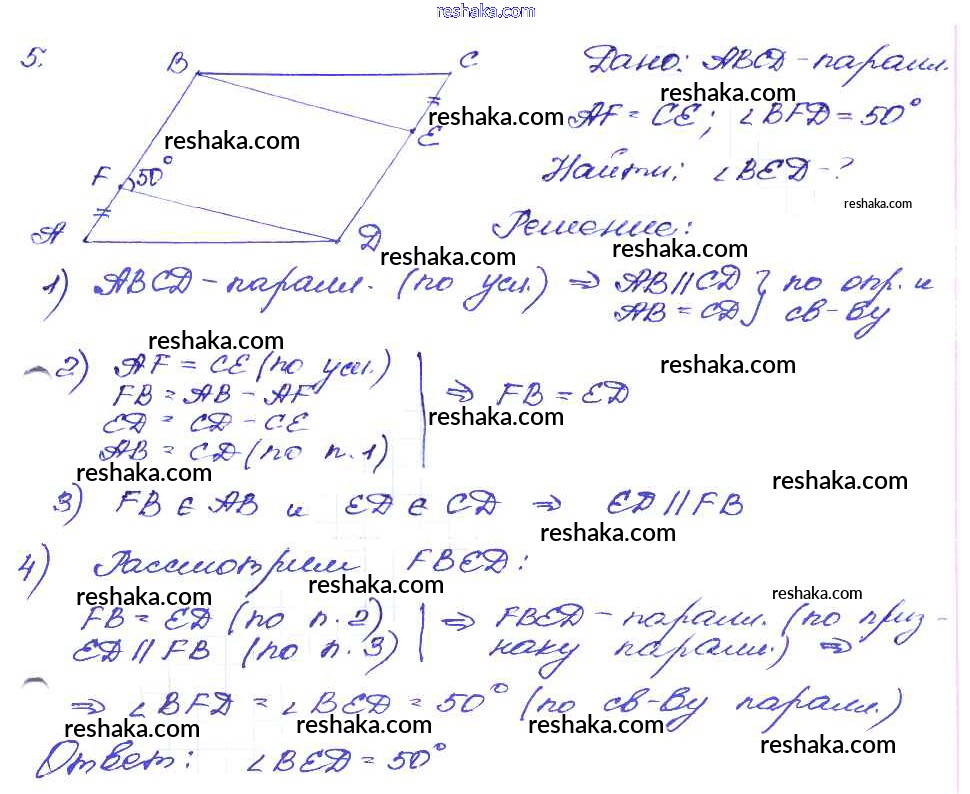 reshaka.com
5.
B C
Дано: ABCD - паралл.
reshaka.com
reshaka.com
reshaka.com
E
AF = CE; ∠BFD = 50°
F 50°
Найти: ∠BED - ?
reshaka.com
A D
Решение:
reshaka.com
reshaka.com
1) ABCD - паралл. (по усл.) ⇒ AB || CD } по опр. и
AB = CD } св-ву
reshaka.com
2) AF = CE (по усл.)
reshaka.com
FB = AB - AF ⇒ FB = ED
reshaka.com
ED = CD - CE
AB = CD (по п. 1)
reshaka.com
reshaka.com
3) FB ∈ AB и ED ∈ CD ⇒ ED || FB
reshaka.com
4) Рассмотрим FBED:
reshaka.com
reshaka.com
reshaka.com
FB = ED (по п. 2) ⇒ FBED - паралл. (по приз-
ED || FB (по п. 3) наку паралл.) ⇒
⇒ ∠BFD = ∠BED = 50° (по св-ву паралл.)
reshaka.com
reshaka.com
reshaka.com
reshaka.com
Ответ: ∠BED = 50°